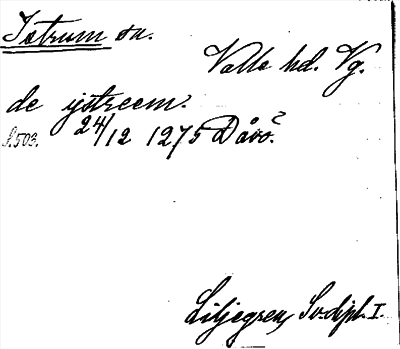 Istrum sn.
Valle hd. Vg.
de ystreem.
S. 503. 24/12 1275 Dåvo.2
Liljegren, Sv. dipl. I.